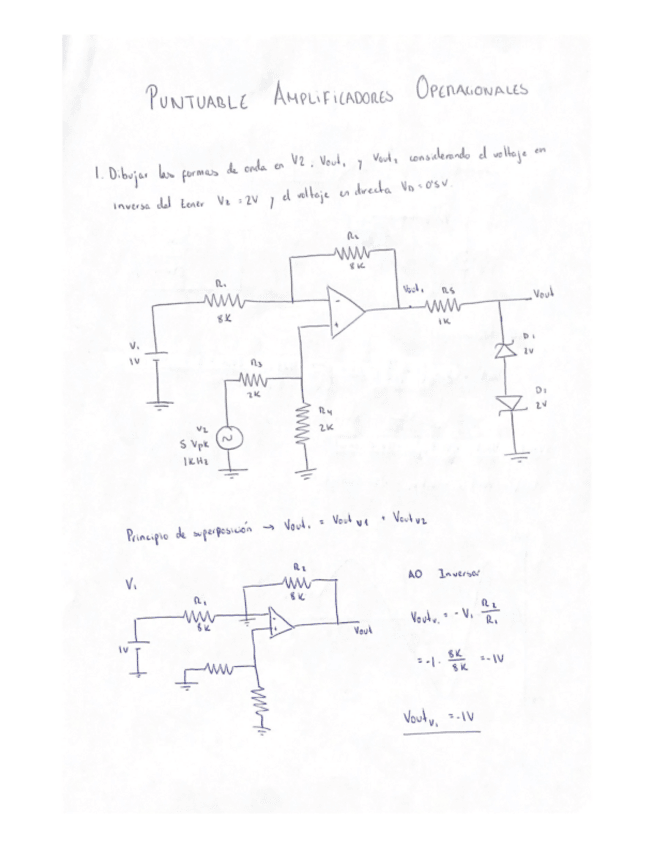 PUNTUABLE AMPLIFICADORES OPERACIONALES
1. Dibujar las formas de onda en V2, Vout₁ y Vout₂ considerando el voltaje en
inversa del zener Vz = 2V y el voltaje en directa VD = 0'5V.
R₂
8K
R₁
8K
Vout₁
R5
1K
Vout
V₁
1V
-
+
D1
2V
R3
2K
D2
2V
R4
2K
V2
5 Vpk
1KHz
Principio de superposición → Vout₁ = Vout V1 + Vout V2
V₁
R2
8K
R₁
8K
1V
-
+
Vout
AO Inversor
Vout V₁ = - V₁ R2/R₁
= -1 · 8K/8K = -1V
Vout V₁ = -1V